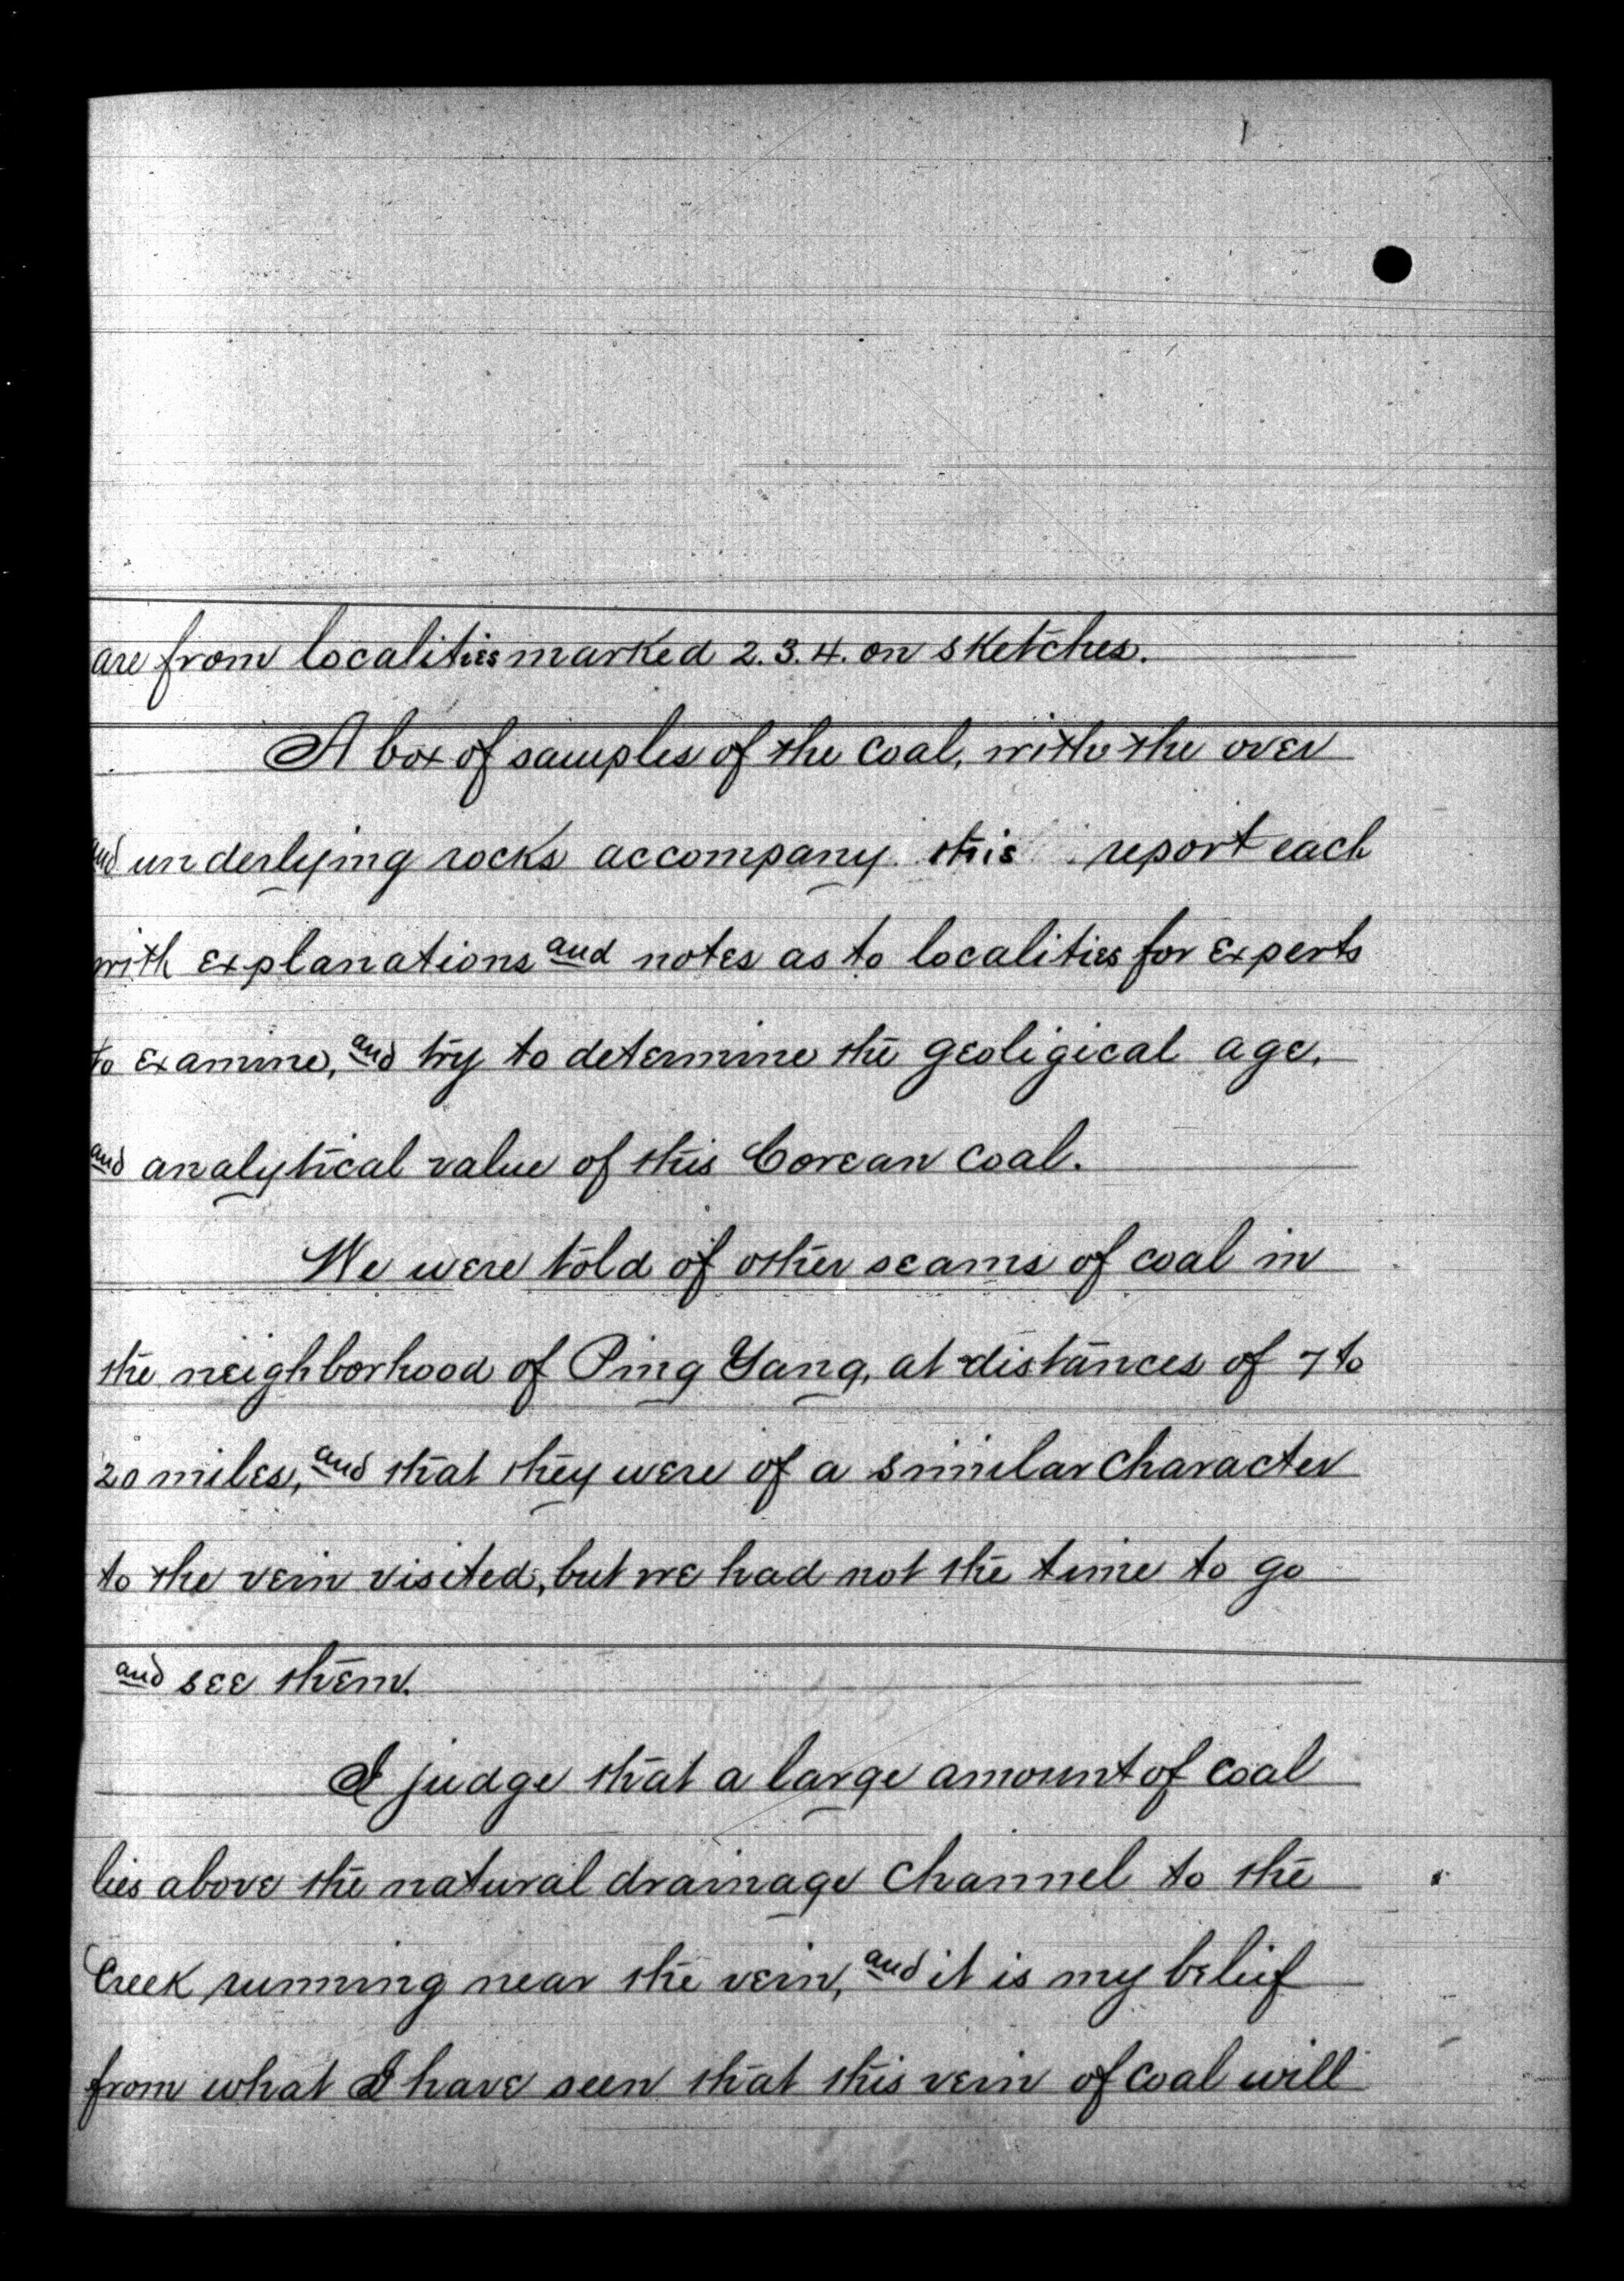 are from localities marked 2.3.4. on sketches.
A box of samples of the coal, with the over
and underlying rocks accompany this report each
with explanations and notes as to localities for experts
to examine, and try to determine the geoligical age,
and analytical value of this Corean coal.
We were told of other seams of coal in
the neighborhood of Ping Yang, at distances of 7 to
20 miles, and that they were of a similar character
to the vein visited, but we had not the time to go
and see them.
I judge that a large amount of coal
lies above the natural drainage channel to the
Creek running near the vein, and it is my belief
from what I have seen that this vein of coal will